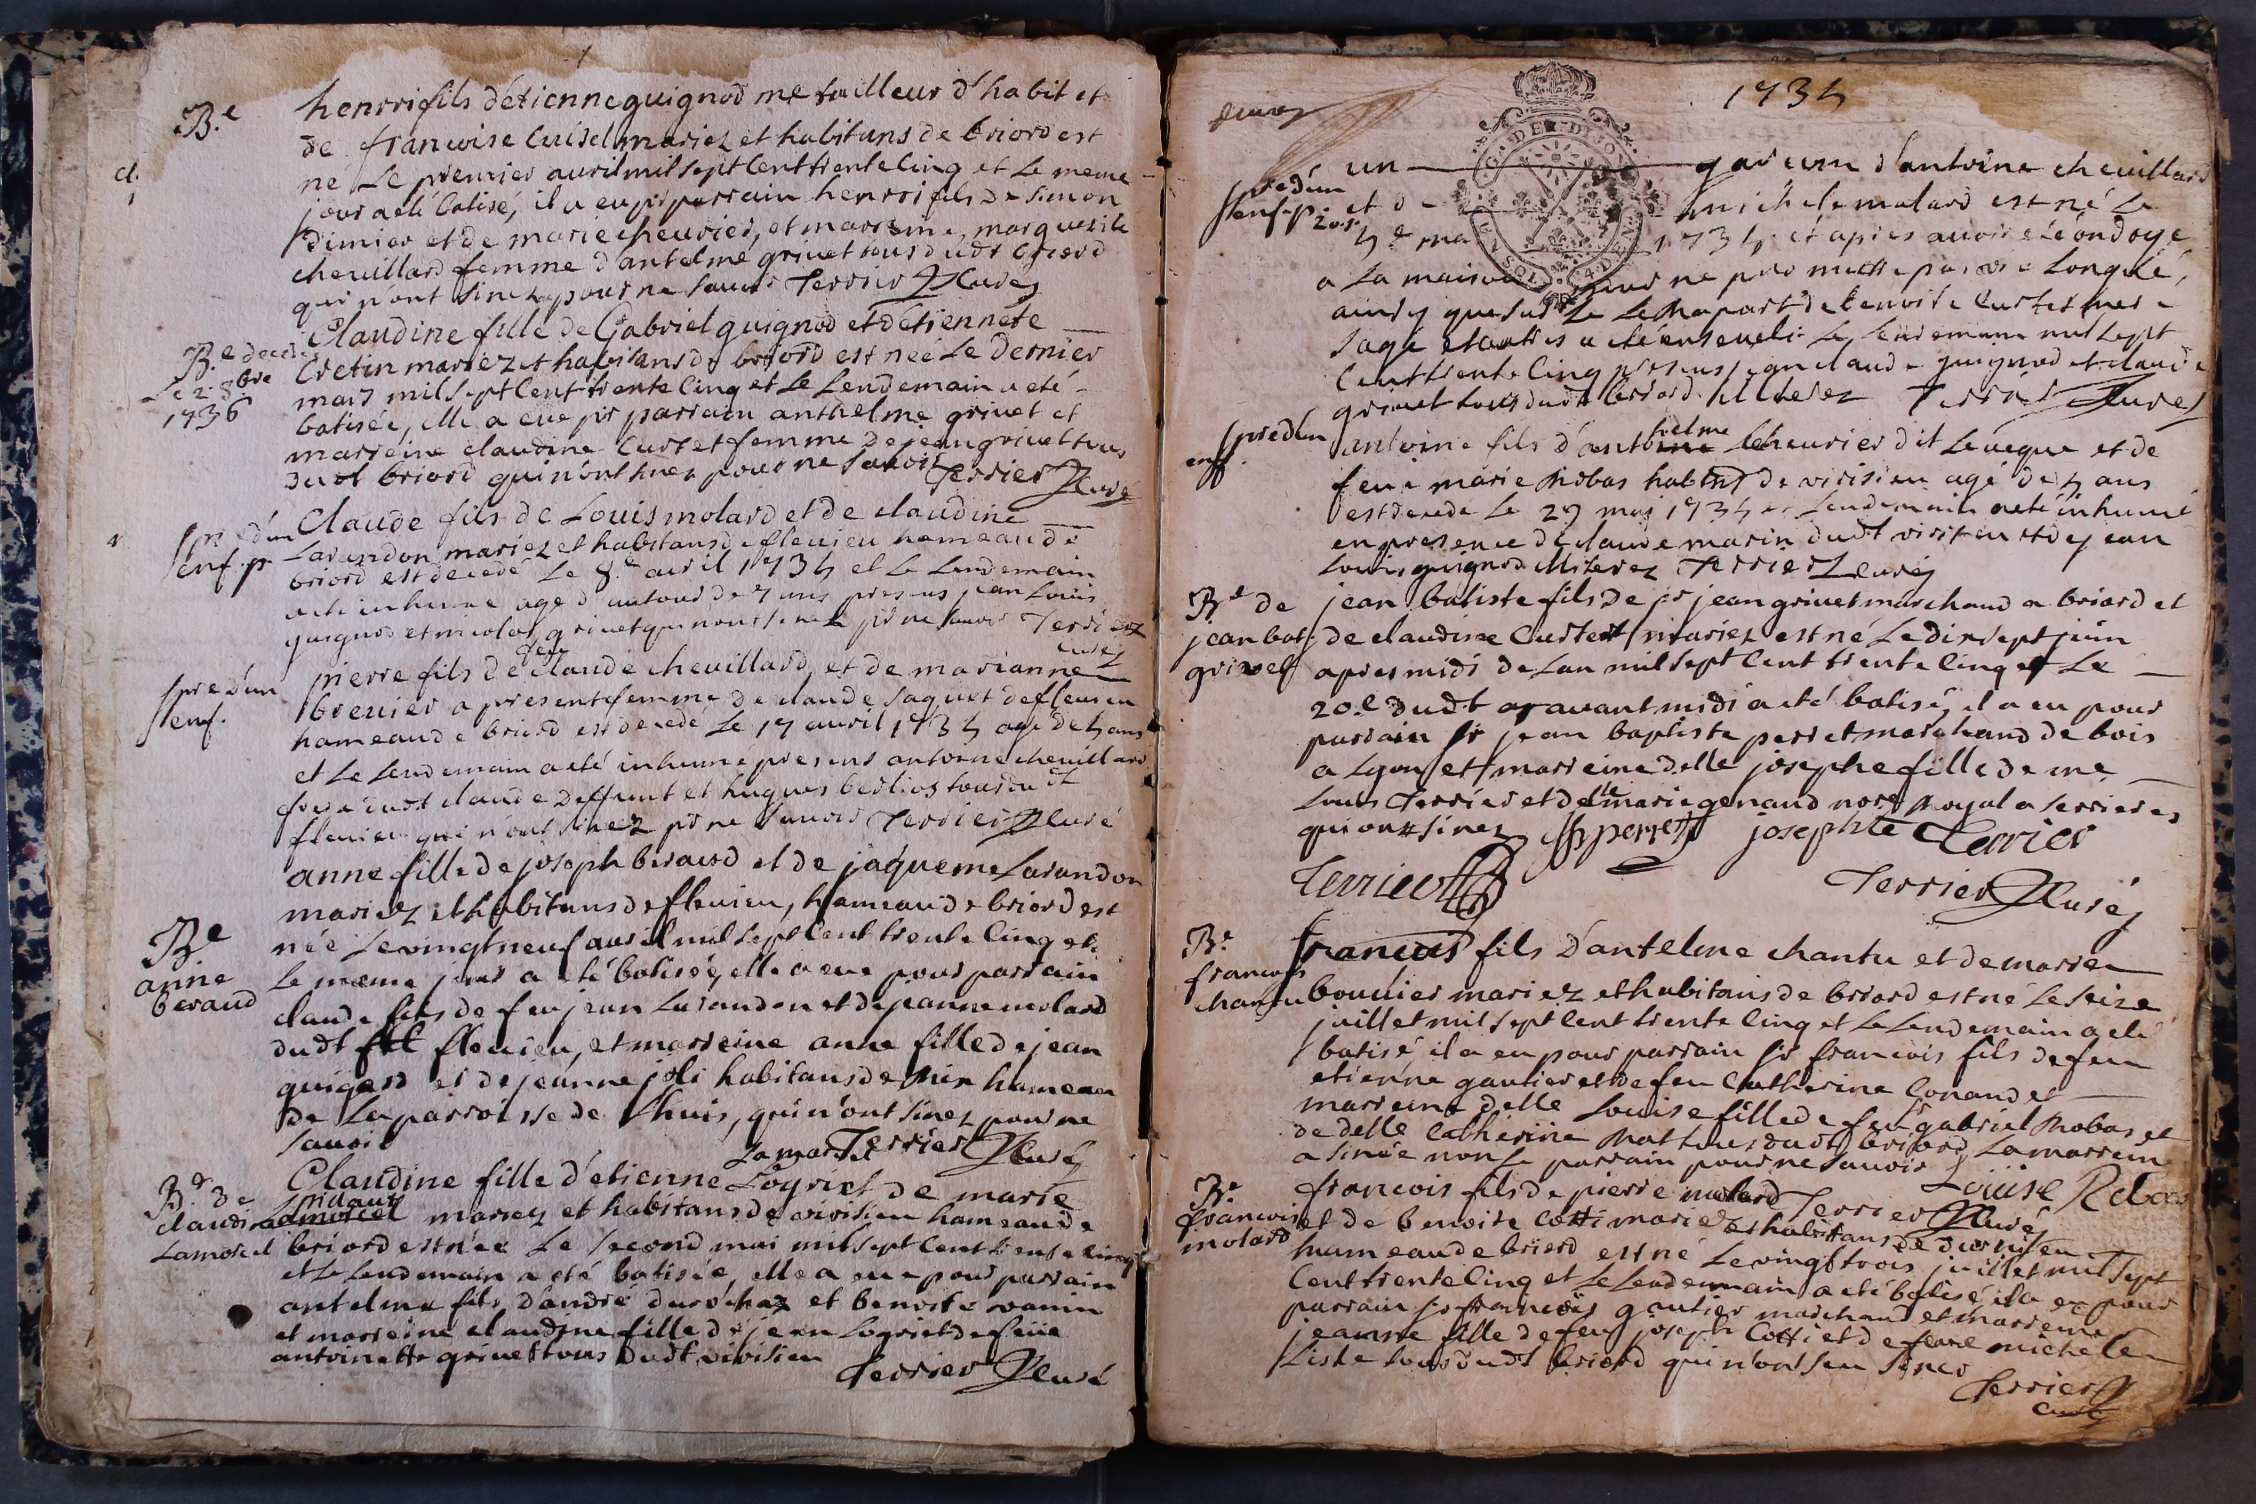 B.e
henrri fils d'etienne guignod me tailleur d'habit et
de francoise Cuisel mariez et habitans de briord est
né Le premier avril mil sept Cent trente Cinq et Le meme
jour a eté batisé, il a eu pr parrain henrri fils de simon
dimier et de marie cheurier, et marreine, marguerite
chevillard femme d'antelme grivet tous dudt briord
qui n'ont sinez pour ne savoir Terrier Curé
B.e decede
Le 2. 8bre
1736
Claudine fille de Gabriel guignod et d'etiennete
Cretin mariez et habitans de briord est née Le dernier
mars mil sept Cent trente Cinq et Le Lendemain a eté
batisée, elle a eue pr parrain anthelme grivet et
marreine claudine Curtet femme de jean grivet tous
dudt briord qui n'ont sinez pour ne savoir
Terrier Curé
spre d'un
enf. p.
Claude fils de Louis molard et de claudine
Larandon mariez et habitans de fleurieu hameau de
briord est decedé Le 8.e avril 1735 et Le Lendemain
a eté inhumé agé d'autour de 7 ans presens jean Louis
guignod et nicolas grivet qui n'ont sinez pr ne savoir Terrier
curé
spre d'un
enf.
pierre fils de feu claude chevillard, et de marianne
brevier a present femme de claude saquet de fleurieu
hameau de briord est decedé Le 17 avril 1735 agé de 5 ans
et Le Lendemain a eté inhumé presens antoine chevillard
frere dudt claude deffunt et hugues berlioz tous dudt
fleurieu qui n'ont sinez pr ne savoir Terrier Curé
Be
anne
beraud
anne fille de joseph beraud et de jaqueme Larandon
mariez et habitans de fleurieu, hameau de briord est
née Le vingt neuf avril mil sept Cent trente Cinq et
Le meme jour a eté batisée, elle a eue pour parrain
claude fils de feu jean Larandon et de jeanne molard
dudt fleurieu, et marreine anne fille de jean
guigard et de jeanne joli habitans de Mix hameau
de La parroisse de Lhuis, qui n'ont sinez pour ne
savoir
Terrier Curé
B.e de
claudine
Lamorcel
Claudine fille d'etienne Logriet de marie
mariez et habitans de vivisieu hameau de
briord est née Le second mai mil sept Cent trente Cinq
et Le Lendemain a eté batisée, elle a eue pour parrain
antelme fils d'andré durochaz et benoite vanin
et marreine claudine fille de jean Logriet de feüe
antoinette grivet tous dudt vivisieu
Terrier Curé
1735
spre d'un
enf. p.
un garcon d'antoine chevillard
et de michele molard est né Le
1735 et apres avoir eté ondoyé
a La maison
ainsy que
sage a eté enseveli Le Lendemain mil sept
Cent trente Cinq presens jean claude guignod et claude
grivet tous dudt briord illiterez Terrier Curé
spre d'un
enf.
antoine fils d'anthelme cheurier dit Léveque et de
feüe marie Robas habitt de vivisieu agé de 5 ans
est decedé Le 27 mai 1735 et Lendemain a eté inhumé
en presence de claude marin dudt visisieu et de jean
Louis guignod illiterez Terrier Curé
B.e de
jean bat.
grivet
jean batiste fils de sr jean grivet marchand a briord et
de claudine Curtet mariez est né Le dix sept juin
apres midi de Lan mil sept Cent trente Cinq et Le
20.e dudt avant midi a eté batisé, il a eu pour
parrain sr jean baptiste perret marchand de bois
a Lyon et marreine delle josephe fille de me
Louis Terrier et de marie genaud nore Royal a serrieres
qui ont sinez JB perret josephte Terrier
Terrier
Terrier Curé
B.e
francois
chantu
francois fils d'antelme chantu et de marre
bouvier mariez et habitans de briord est né Le seize
juillet mil sept Cent trente Cinq et Le Lendemain a eté
batisé il a eu pour parrain sr francois fils de feu
etienne gautier et de feu Catherine Conand et
marreine delle Louise fille de feu sr gabriel Robas et
de delle Catherine dudt briord La marreine
a sinée non Le parrain pour ne savoir
Louise Robas
Terrier Curé
B.e
francois
molard
francois fils de pierre molard
et de benoite Cotti mariez et habitans de
hameau de briord est né Le vingt trois juillet mil sept
Cent trente Cinq et Le Lendemain a eté batisé il a eu pour
parrain sr francois gautier marchand et marreine
jeanne fille de feu joseph Cotti et de feüe michele
Liste tous dudt briord qui n'ont seu sinez
Terrier
curé